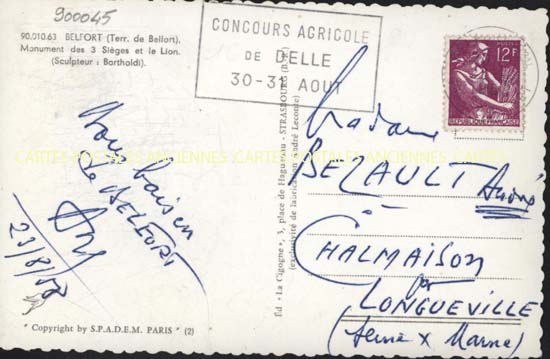 900045
90.010.63 BELFORT (Terr. de Belfort).
Monument des 3 Sièges et le Lion.
(Sculpteur : Bartholdi).
CONCOURS AGRICOLE
DE DELLE
30-31 AOUT
POSTES
12F
REPUBLIQUE FRANÇAISE
CARTES POSTALES ANCIENNES CARTES POSTALES ANCIENNES
baiser
de BELFORT
23/8/58
Ed. "La Cigogne", 3, place de Haguenau - STRASBOURG
(exclusivité de fabrication André Leconte)
Madame
BEZAULI André
CHALMAISON
par
LONGUEVILLE
(Seine x Marne)
" Copyright by S.P.A.D.E.M. PARIS " (2)